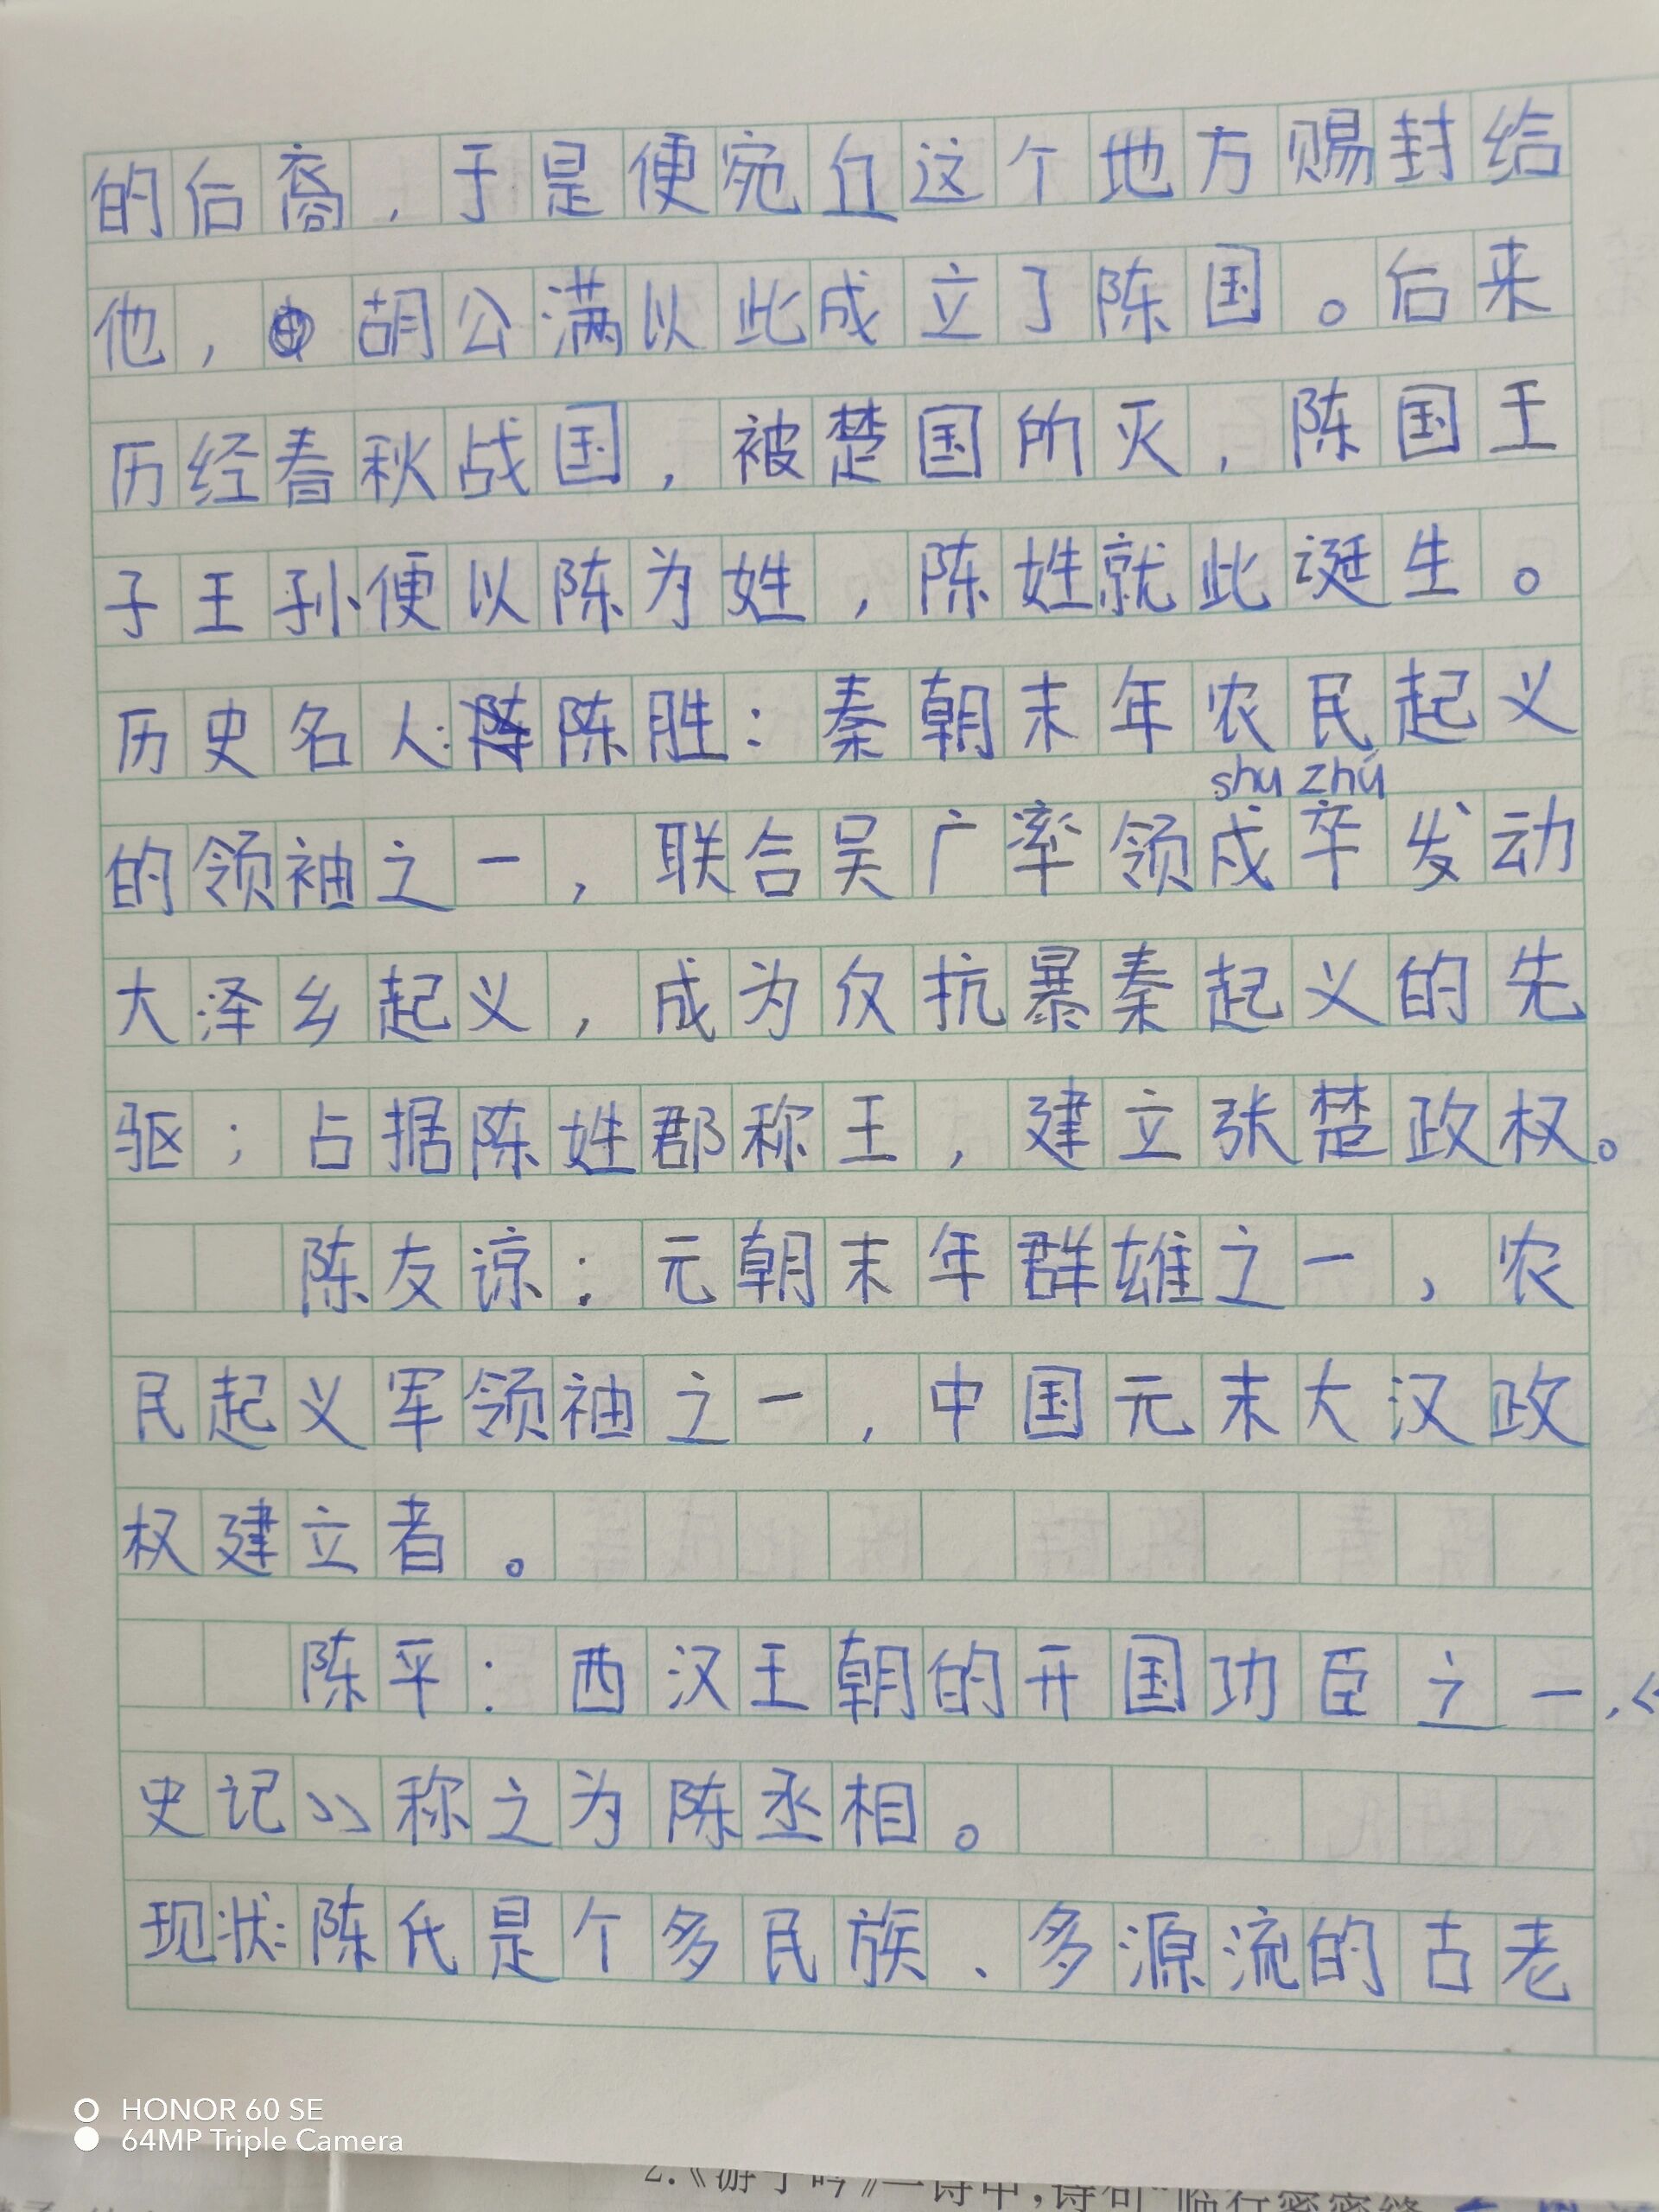 的后裔，于是便宛丘这个地方赐封给
他，胡公满以此成立了陈国。后来
历经春秋战国，被楚国所灭，陈国王
子王孙便以陈为姓，陈姓就此诞生。
历史名人：陈胜：秦朝末年农民起义
shu zhú
的领袖之一，联合吴广率领戍卒发动
大泽乡起义，成为仅抗暴秦起义的先
驱；占据陈姓郡称王，建立张楚政权。
陈友谅：元朝末年群雄之一，农
民起义军领袖之一，中国元末大汉政
权建立者。
陈平：西汉王朝的开国功臣之一，《
史记》称之为陈丞相。
现状：陈氏是个多民族、多源流的古老
HONOR 60 SE
64MP Triple Camera